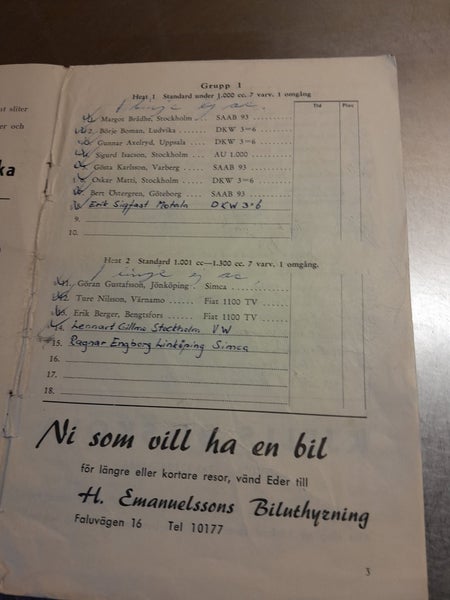 at sliter
er och
ka
Grupp 1
Heat 1 Standard under 1.000 cc. 7 varv. 1 omgång
Tid Plac
I linje ej ac.
1. Margot Brådhe, Stockholm SAAB 93
2. Börje Boman, Ludvika DKW 3=6
Gunnar Axelryd, Uppsala DKW 3=6
Sigurd Isacson, Stockholm AU 1.000
Gösta Karlsson, Varberg SAAB 93
Oskar Matti, Stockholm DKW 3=6
Bert Östergren, Göteborg SAAB 93
Erik Sigfast Motala DKW 3=6
9.
10.
Heat 2 Standard 1.001 cc—1.300 cc. 7 varv. 1 omgång.
I linje ej ac
Göran Gustafsson, Jönköping Simca
Ture Nilsson, Värnamo Fiat 1100 TV
Erik Berger, Bengtsfors Fiat 1100 TV
14. Lennart Gillmo Stockholm VW
15. Ragnar Engborg Linköping Simca
16.
17.
18.
Ni som vill ha en bil
för längre eller kortare resor, vänd Eder till
H. Emanuelssons Biluthyrning
Faluvägen 16 Tel 10177
3